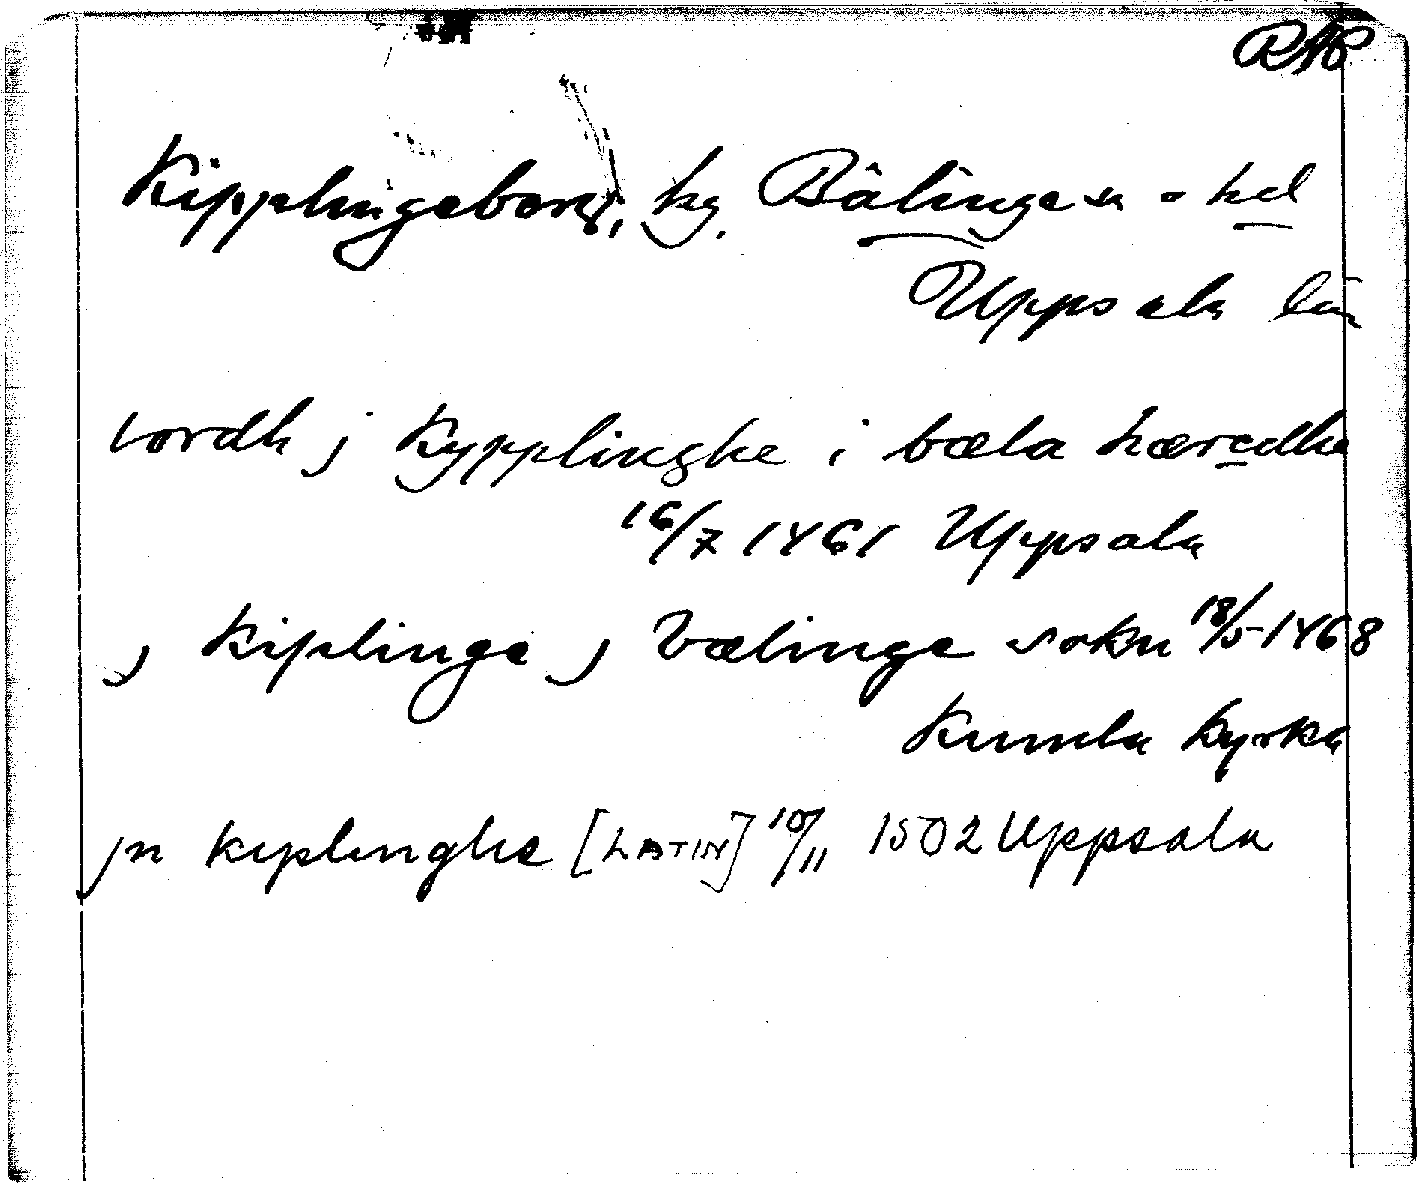 RAP
Kipplingeberg, hg. Bälinge sn o hd
Uppsala län
tordh j Kypplinghe i bæla hæredhe
16/7 1461 Uppsala
j Kiplinge j Bælinge sokn 18/5 1468
Kumla kyrka
jn kiplinghe [LATIN] 10/11 1502 Uppsala